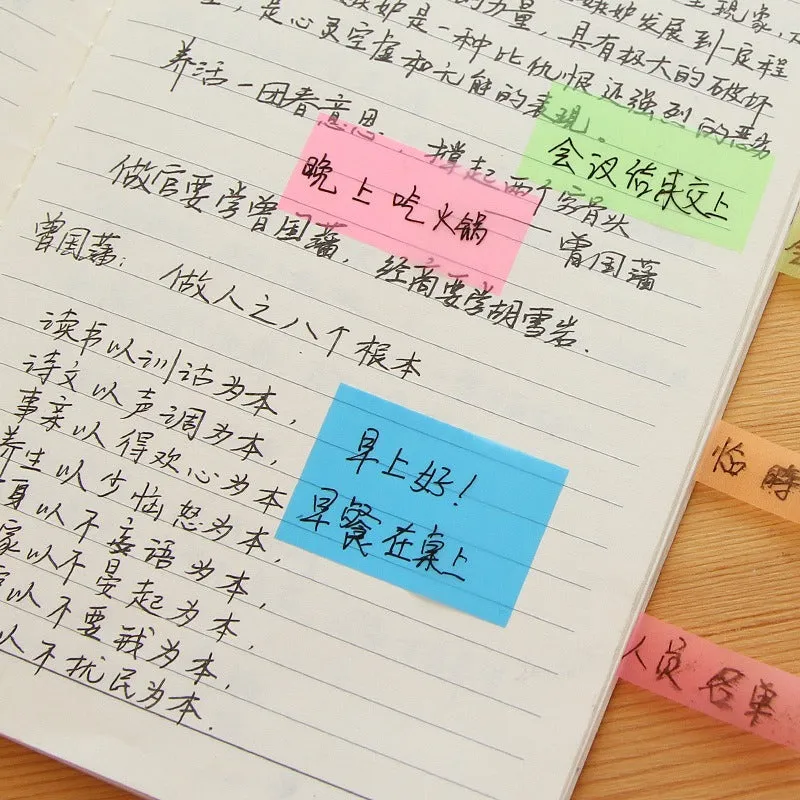 现象,
嫉妒发展到一定程
的力量,具有极大的破坏
嫉妒是一种比仇恨还强烈的恶劣
,是心灵空虚和无能的表现。
养活一团春意思,撑起两个穷骨头
——曾国藩
做官要学曾国藩,经商要学胡雪岩.
曾国藩:做人之八个根本
读书以训诂为本,
诗文以声调为本,
事亲以得欢心为本,
养生以少恼怒为本,
身以不妄语为本,
家以不晏起为本,
以不要钱为本,
以不扰民为本.
会议结束交上
晚上吃火锅
早上好!
早餐在桌上
临时
人员名单